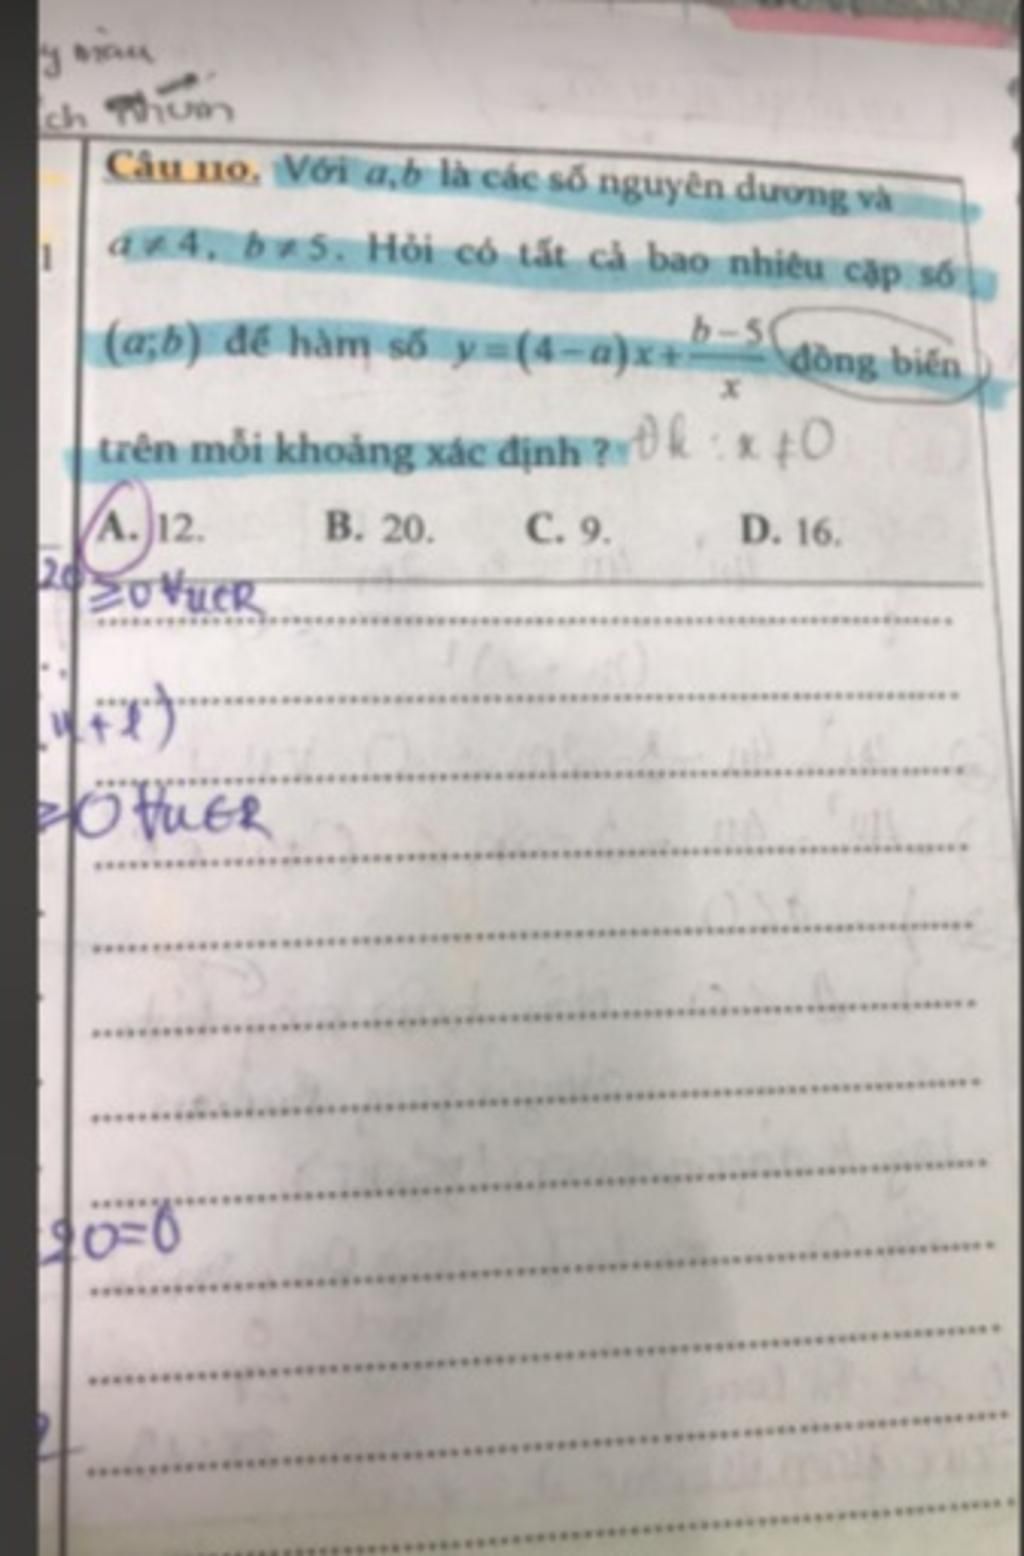 y
ch nhóm
Câu 110. Với a,b là các số nguyên dương và
1
a ≠ 4, b ≠ 5. Hỏi có tất cả bao nhiêu cặp số
(a;b) để hàm số y = (4 − a)x + \frac{b − 5}{x} đồng biến
trên mỗi khoảng xác định ? Đk : x ≠ 0
A. 12. B. 20. C. 9. D. 16.
20 ≥ 0 ∀x∈R
≥ 0 ∀x∈R
20 = 0